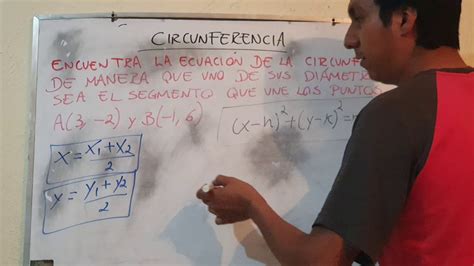 CIRCUNFERENCIA
ENCUENTRA LA ECUACION DE LA CIRCUNF
DE MANERA QUE UNO DE SUS DIÁMETR
SEA EL SEGMENTO QUE UNE LOS PUNTOS
A(3, -2) y B(-1, 6)
(x-h)²+(y-k)²=
X = X₁+X₂/2
y = y₁+y₂/2